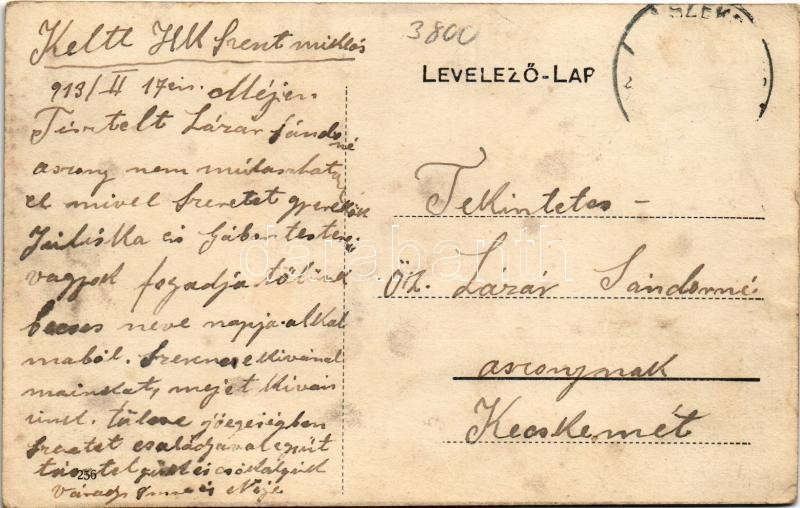 Kelt HM Szent miklós
913/II 17 én. Méjen
Tisztelt Lázár Sándorné
aszony nem múlaszhatja
el mivel Szeretet gyerekök
Juliska és Gábor testvérei
vagyok fogadja tölünk
becses neve napja alkal
mából. Szerencse kivánat
mainkat, mejet kiván
unk. tölcse jóegeségben
Szeretet családjával egyűt
tisztel jük és csókoljuk
Várady Imre és Neje
256
3800
LEVELEZŐ-LAP
SZEK
Tekintetes
Öz. Lázár Sándorné
aszonynak
Kecskemét
darabanth